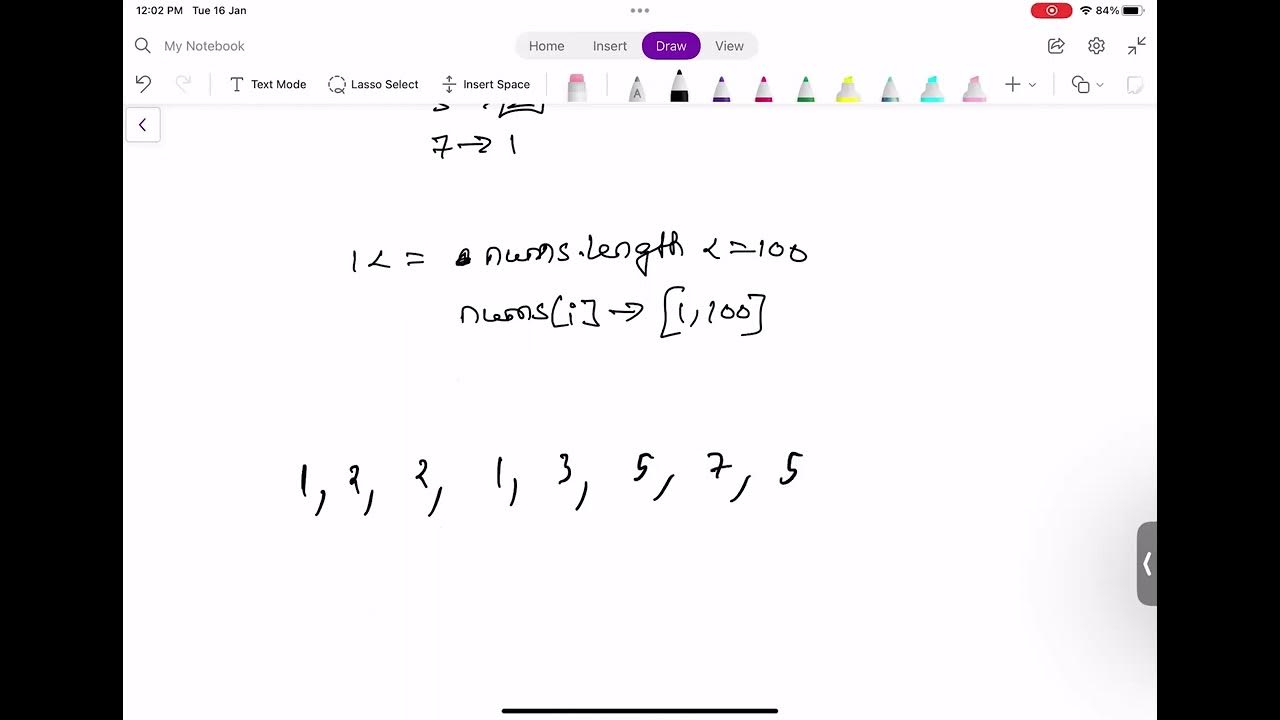 12:02 PM Tue 16 Jan 84%
My Notebook Home Insert Draw View
Text Mode Lasso Select Insert Space
7 → 1
1 < = nums.length <=100
nums[i] → [1,100]
1, 2, 2, 1, 3, 5, 7, 5